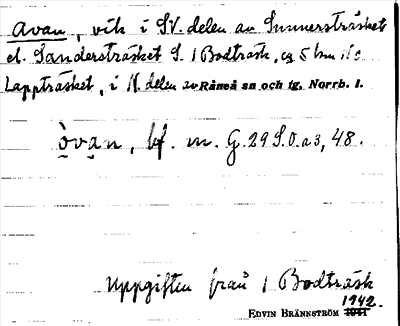 Avan, vik i SV. delen av Sunnersträsket
el. Sandersträsket S. / Bodträsk, c:a 5 km N o
Lappträsket, i N. delen av Råneå sn och tg. Norrb. l.
òvan, bf. m. G. 29 S.O. a3, 48.
Uppgiften från / Bodträsk
1942.
EDVIN BRÄNNSTRÖM 1941